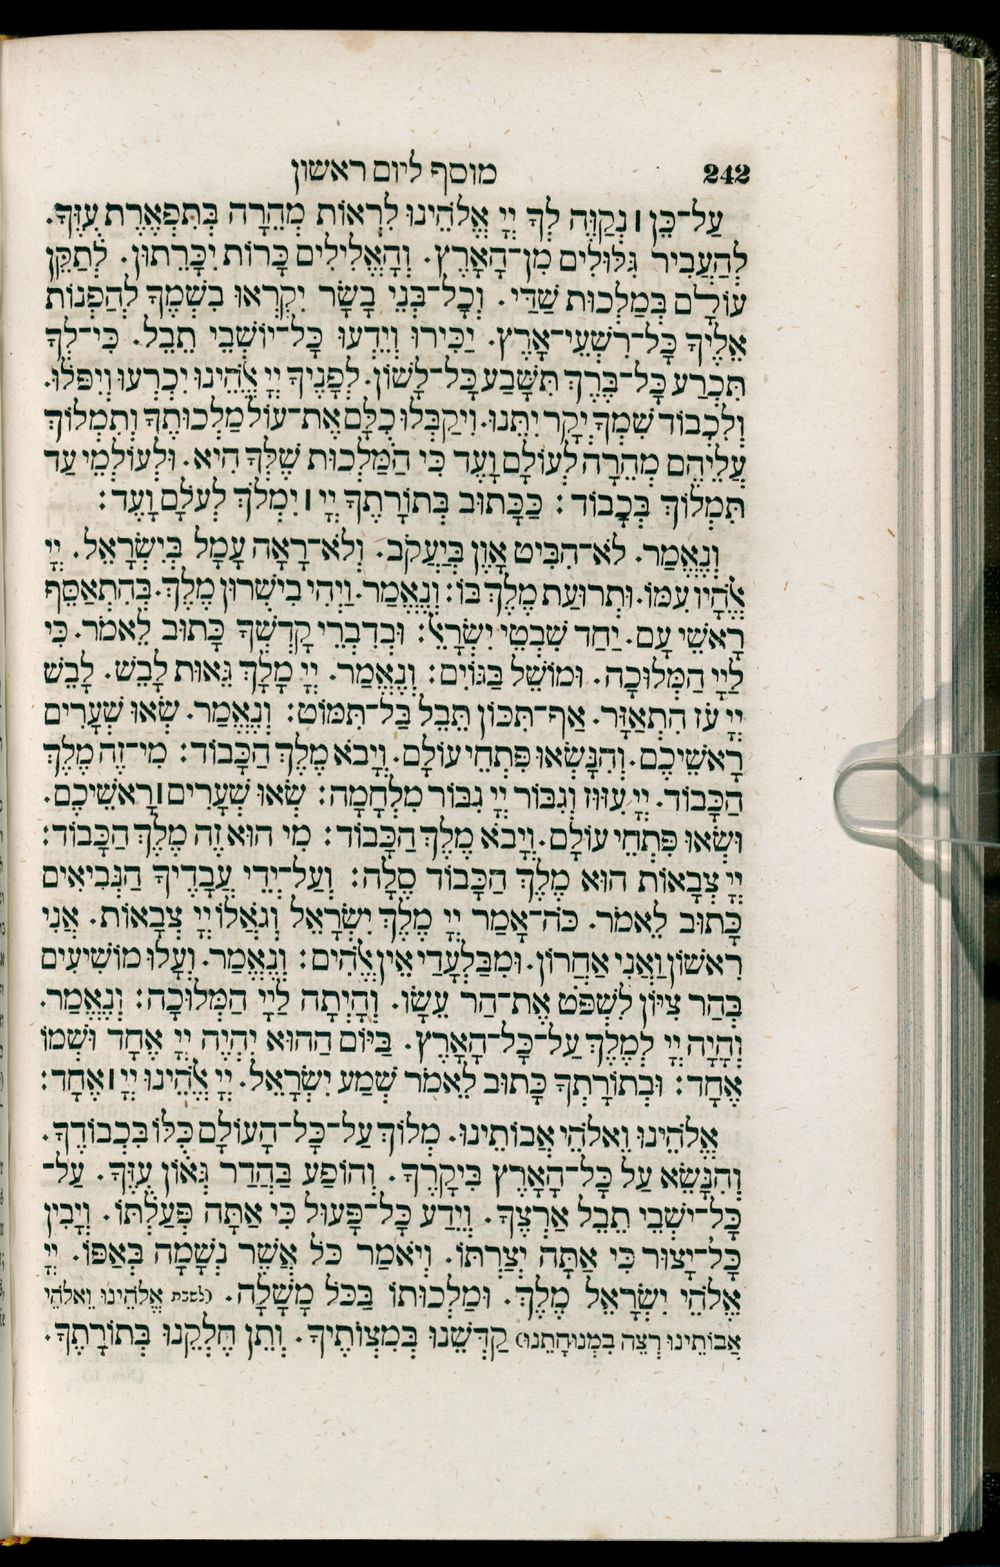 242 מוסף ליום ראשון
עַל־כֵּן ׀ נְקַוֶּה לְּךָ יְיָ אֱלֹהֵינוּ לִרְאוֹת מְהֵרָה בְּתִפְאֶרֶת עֻזֶּךָ.
לְהַעֲבִיר גִּלּוּלִים מִן־הָאָרֶץ. וְהָאֱלִילִים כָּרוֹת יִכָּרֵתוּן. לְתַקֵּן
עוֹלָם בְּמַלְכוּת שַׁדַּי. וְכָל־בְּנֵי בָשָׂר יִקְרְאוּ בִשְׁמֶךָ לְהַפְנוֹת
אֵלֶיךָ כָּל־רִשְׁעֵי־אָרֶץ. יַכִּירוּ וְיֵדְעוּ כָּל־יוֹשְׁבֵי תֵבֵל. כִּי־לְךָ
תִּכְרַע כָּל־בֶּרֶךְ תִּשָּׁבַע כָּל־לָשׁוֹן. לְפָנֶיךָ יְיָ אֱלֹהֵינוּ יִכְרְעוּ וְיִפֹּלוּ.
וְלִכְבוֹד שִׁמְךָ יְקָר יִתֵּנוּ. וִיקַבְּלוּ כֻלָּם אֶת־עוֹל מַלְכוּתֶךָ וְתִמְלוֹךְ
עֲלֵיהֶם מְהֵרָה לְעוֹלָם וָעֶד כִּי הַמַּלְכוּת שֶׁלְּךָ הִיא. וּלְעוֹלְמֵי עַד
תִּמְלוֹךְ בְּכָבוֹד: כַּכָּתוּב בְּתוֹרָתֶךָ יְיָ ׀ יִמְלֹךְ לְעֹלָם וָעֶד:
וְנֶאֱמַר. לֹא־הִבִּיט אָוֶן בְּיַעֲקֹב. וְלֹא־רָאָה עָמָל בְּיִשְׂרָאֵל. יְיָ
אֱלֹהָיו עִמּוֹ. וּתְרוּעַת מֶלֶךְ בּוֹ: וְנֶאֱמַר. וַיְהִי בִישֻׁרוּן מֶלֶךְ. בְּהִתְאַסֵּף
רָאשֵׁי עָם. יַחַד שִׁבְטֵי יִשְׂרָאֵל: וּבְדִבְרֵי קָדְשְׁךָ כָּתוּב לֵאמֹר. כִּי
לַיְיָ הַמְּלוּכָה. וּמוֹשֵׁל בַּגּוֹיִם: וְנֶאֱמַר. יְיָ מָלָךְ גֵּאוּת לָבֵשׁ. לָבֵשׁ
יְיָ עֹז הִתְאַזָּר. אַף־תִּכּוֹן תֵּבֵל בַּל־תִּמּוֹט: וְנֶאֱמַר. שְׂאוּ שְׁעָרִים
רָאשֵׁיכֶם. וְהִנָּשְׂאוּ פִּתְחֵי עוֹלָם. וְיָבֹא מֶלֶךְ הַכָּבוֹד: מִי־זֶה מֶלֶךְ
הַכָּבוֹד. יְיָ עִזּוּז וְגִבּוֹר יְיָ גִבּוֹר מִלְחָמָה: שְׂאוּ שְׁעָרִים ׀ רָאשֵׁיכֶם.
וּשְׂאוּ פִּתְחֵי עוֹלָם. וְיָבֹא מֶלֶךְ הַכָּבוֹד: מִי הוּא זֶה מֶלֶךְ הַכָּבוֹד:
יְיָ צְבָאוֹת הוּא מֶלֶךְ הַכָּבוֹד סֶלָה: וְעַל־יְדֵי עֲבָדֶיךָ הַנְּבִיאִים
כָּתוּב לֵאמֹר. כֹּה־אָמַר יְיָ מֶלֶךְ יִשְׂרָאֵל וְגֹאֲלוֹ יְיָ צְבָאוֹת. אֲנִי
רִאשׁוֹן וַאֲנִי אַחֲרוֹן. וּמִבַּלְעָדַי אֵין אֱלֹהִים: וְנֶאֱמַר. וְעָלוּ מוֹשִׁיעִים
בְּהַר צִיּוֹן לִשְׁפֹּט אֶת־הַר עֵשָׂו. וְהָיְתָה לַיְיָ הַמְּלוּכָה: וְנֶאֱמַר.
וְהָיָה יְיָ לְמֶלֶךְ עַל־כָּל־הָאָרֶץ. בַּיּוֹם הַהוּא יִהְיֶה יְיָ אֶחָד וּשְׁמוֹ
אֶחָד: וּבְתוֹרָתְךָ כָּתוּב לֵאמֹר שְׁמַע יִשְׂרָאֵל. יְיָ אֱלֹהֵינוּ יְיָ ׀ אֶחָד:
אֱלֹהֵינוּ וֵאלֹהֵי אֲבוֹתֵינוּ. מְלוֹךְ עַל־כָּל־הָעוֹלָם כֻּלּוֹ בִּכְבוֹדֶךָ.
וְהִנָּשֵׂא עַל כָּל־הָאָרֶץ בִּיקָרֶךָ. וְהוֹפַע בַּהֲדַר גְּאוֹן עֻזֶּךָ. עַל־
כָּל־יֹשְׁבֵי תֵבֵל אַרְצֶךָ. וְיֵדַע כָּל־פָּעוּל כִּי אַתָּה פְּעַלְתּוֹ. וְיָבִין
כָּל־יָצוּר כִּי אַתָּה יְצַרְתּוֹ. וְיֹאמַר כֹּל אֲשֶׁר נְשָׁמָה בְאַפּוֹ. יְיָ
אֱלֹהֵי יִשְׂרָאֵל מֶלֶךְ. וּמַלְכוּתוֹ בַּכֹּל מָשָׁלָה. (לשבת אֱלֹהֵינוּ וֵאלֹהֵי
אֲבוֹתֵינוּ רְצֵה בִמְנוּחָתֵנוּ) קַדְּשֵׁנוּ בְּמִצְוֹתֶיךָ. וְתֵן חֶלְקֵנוּ בְּתוֹרָתֶךָ.